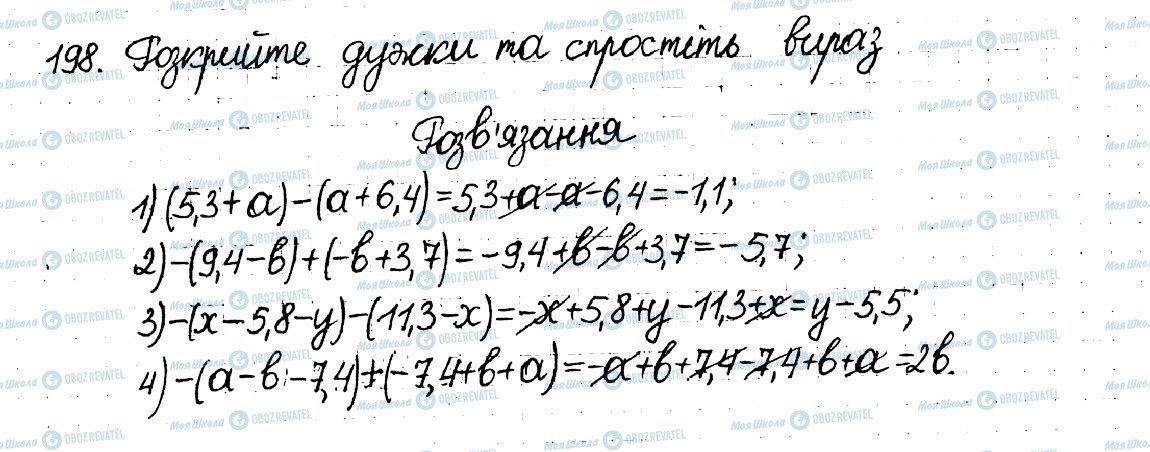 198. Розкрийте дужки та спростіть вираз
Розв'язання
1) (5,3 + a) - (a + 6,4) = 5,3 + a - a - 6,4 = -1,1;
2) -(9,4 - b) + (-b + 3,7) = -9,4 + b - b + 3,7 = -5,7;
3) -(x - 5,8 - y) - (11,3 - x) = -x + 5,8 + y - 11,3 + x = y - 5,5;
4) -(a - b - 7,4) + (-7,4 + b + a) = -a + b + 7,4 - 7,4 + b + a = 2b.